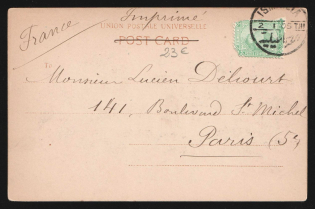 Imprimé
France
UNION POSTALE UNIVERSELLE
POST CARD
23€
Monsieur Lucien Délcourt
141, Boulevard St Michel
Paris (5e)